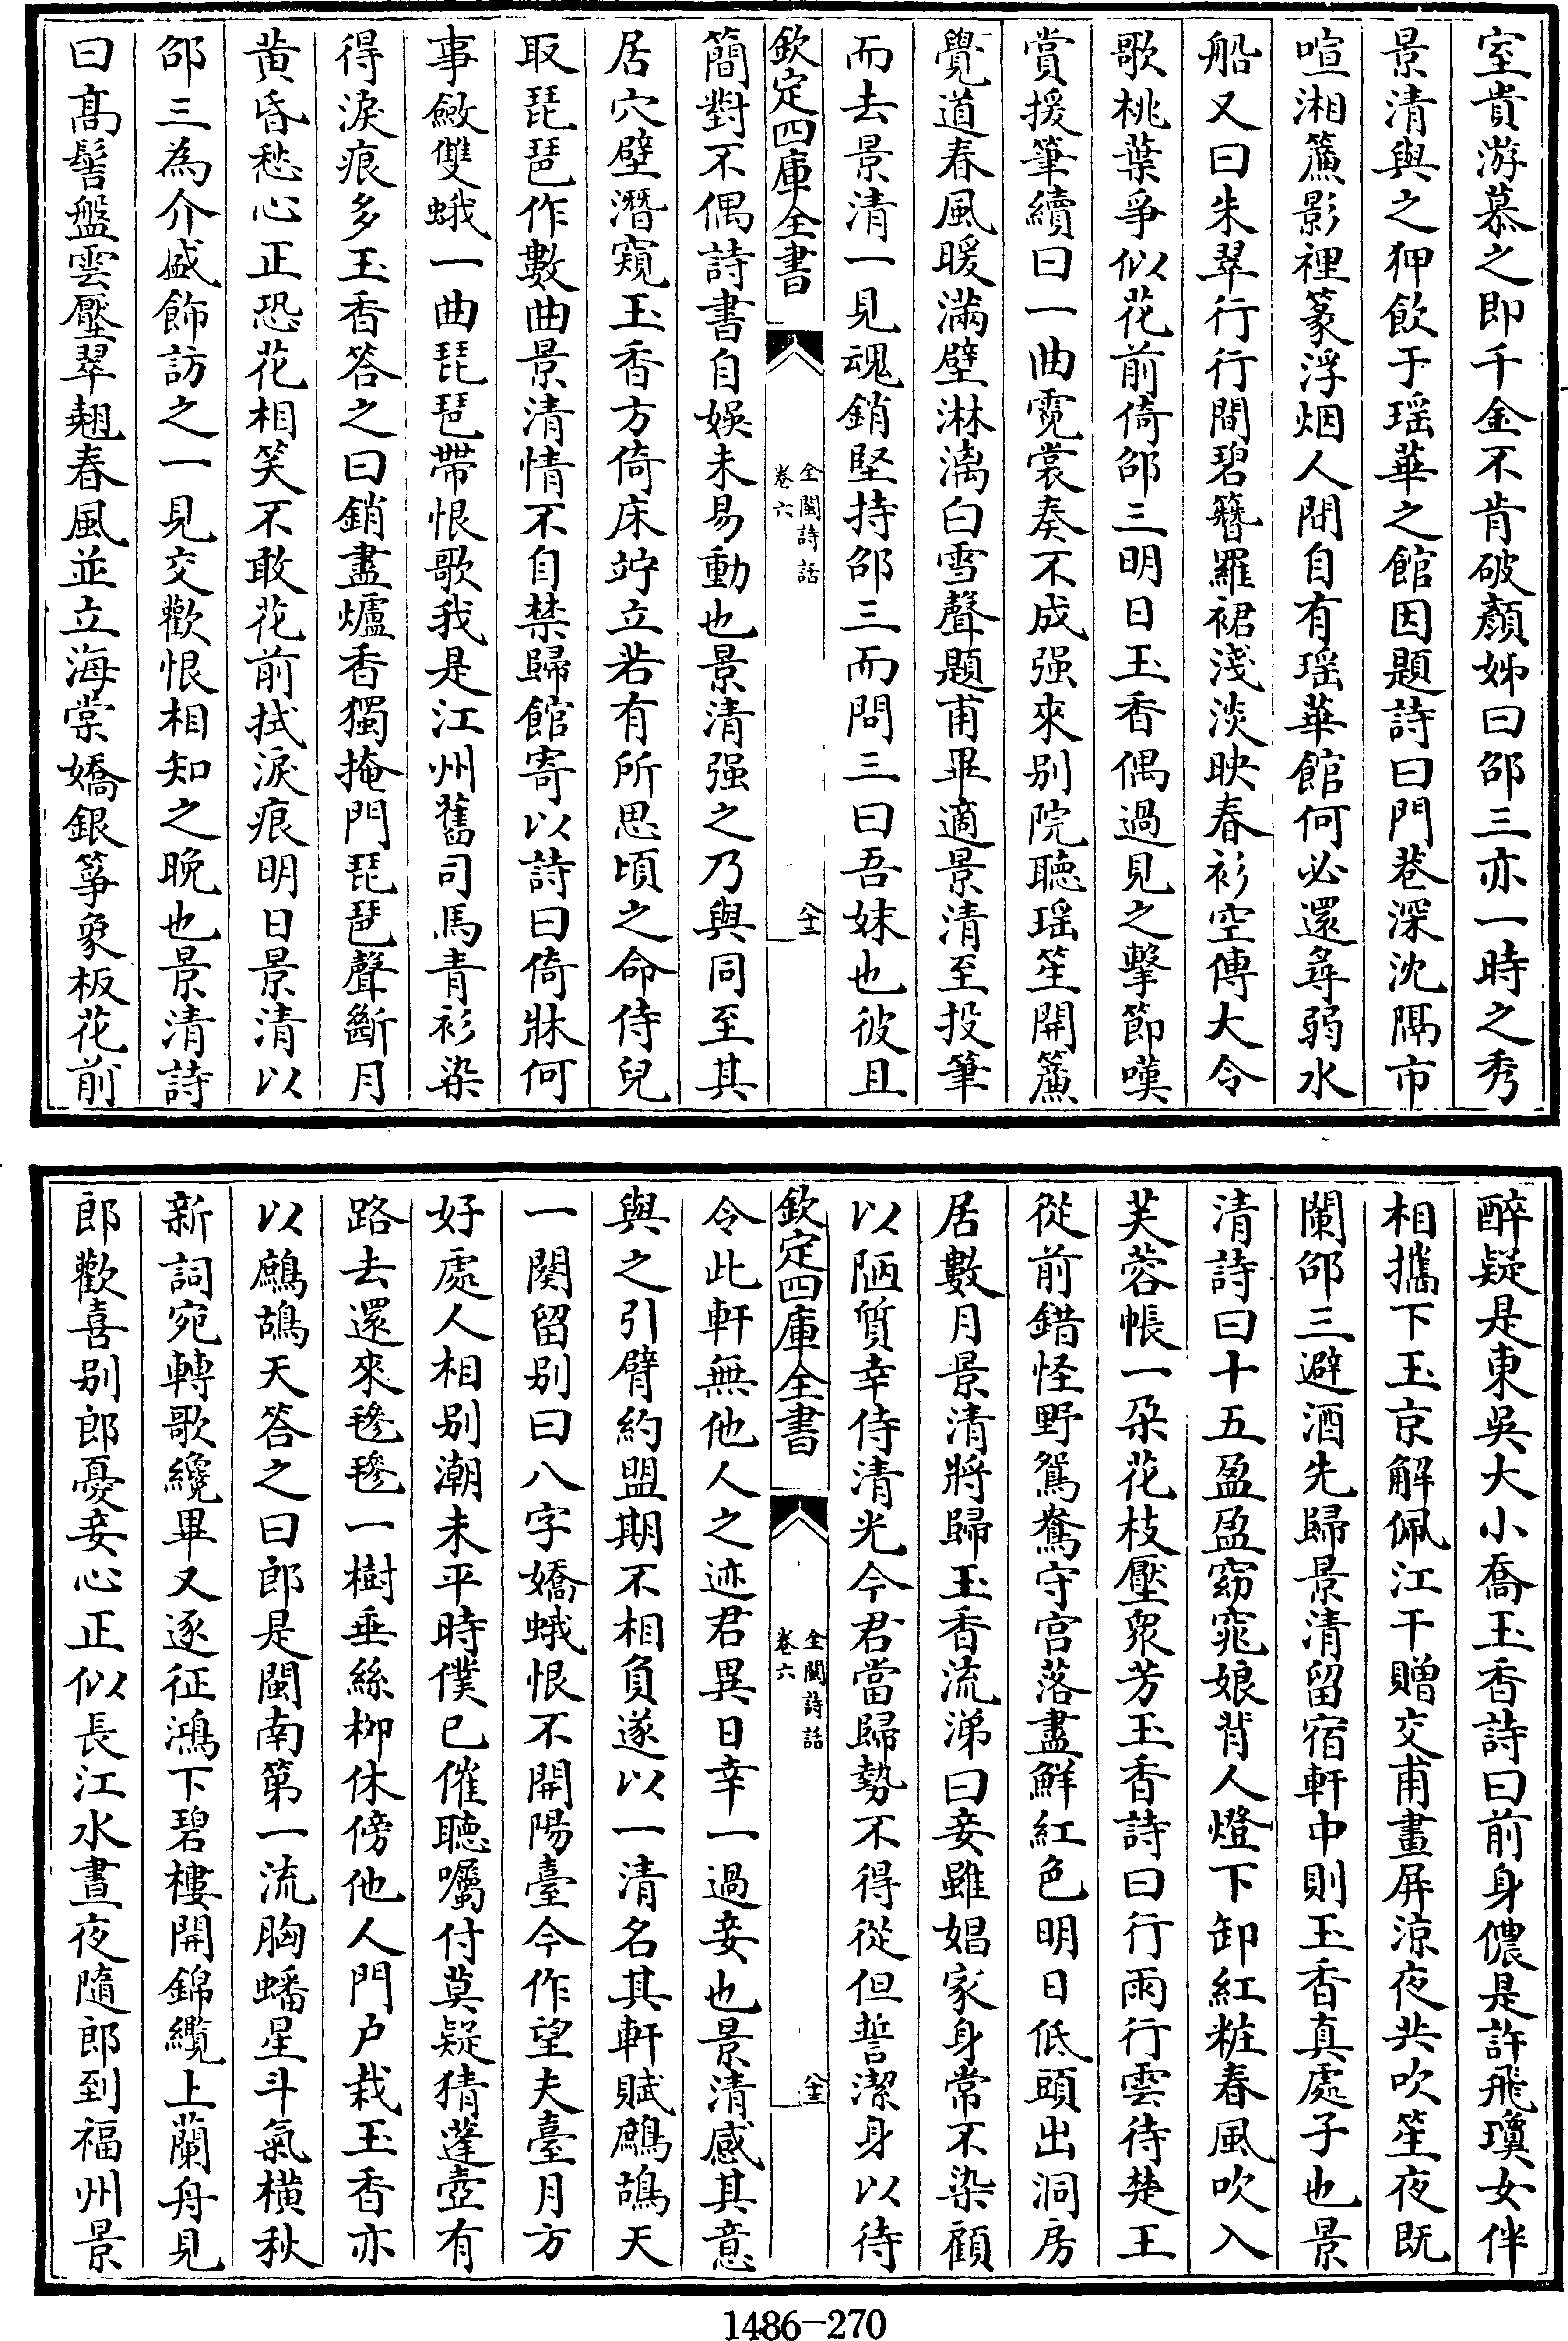 室貴游慕之即千金不肯破顏姊曰邵三亦一時之秀
景清與之狎飲于瑶華之館因題詩曰門巷深沈隔市
喧湘簾影裡篆浮烟人間自有瑶華館何必還尋弱水
船又曰朱翠行行間碧簪羅裙淺淡映春衫空傳大令
歌桃葉爭似花前倚邵三明日玉香偶過見之擊節嘆
賞援筆續曰一曲霓裳奏不成强來别院聽瑶笙開簾
覺道春風暖滿壁淋漓白雪聲題甫畢適景清至投筆
而去景清一見魂銷堅持邵三而問三曰吾妹也彼且
欽定四庫全書
全閩詩話
卷六
八十三
簡對不偶詩書自娱未易動也景清强之乃與同至其
居穴壁潛窺玉香方倚床竚立若有所思頃之命侍兒
取琵琶作數曲景清情不自禁歸館寄以詩曰倚牀何
事斂雙蛾一曲琵琶帶恨歌我是江州舊司馬青衫染
得淚痕多玉香答之曰銷盡爐香獨掩門琵琶聲斷月
黄昏愁心正恐花相笑不敢花前拭淚痕明日景清以
邵三為介盛飾訪之一見交歡恨相知之晚也景清詩
曰髙髻盤雲壓翠翹春風並立海棠嬌銀箏象板花前
醉疑是東吳大小喬玉香詩曰前身儂是許飛瓊女伴
相攜下玉京解佩江干贈交甫畫屏凉夜共吹笙夜既
闌邵三避酒先歸景清留宿軒中則玉香真處子也景
清詩曰十五盈盈窈窕娘背人燈下卸紅粧春風吹入
芙蓉帳一朶花枝壓衆芳玉香詩曰行雨行雲待楚王
從前錯怪野鴛鴦守宫落盡鮮紅色明日低頭出洞房
居數月景清將歸玉香流涕曰妾雖娼家身常不染顧
以陋質幸侍清光今君當歸勢不得從但誓潔身以待
欽定四庫全書
全閩詩話
卷六
八十三
令此軒無他人之迹君異日幸一過妾也景清感其意
與之引臂約盟期不相負遂以一清名其軒賦鷓鴣天
一闋留别曰八字嬌蛾恨不開陽臺今作望夫臺月方
好處人相别潮未平時僕已催聽囑付莫疑猜蓬壺有
路去還來毿毿一樹垂絲柳休傍他人門户栽玉香亦
以鷓鴣天答之曰郎是閩南第一流胸蟠星斗氣横秋
新詞宛轉歌纔畢又逐征鴻下碧樓開錦纜上蘭舟見
郎歡喜别郎憂妾心正似長江水晝夜隨郎到福州景
1486-270